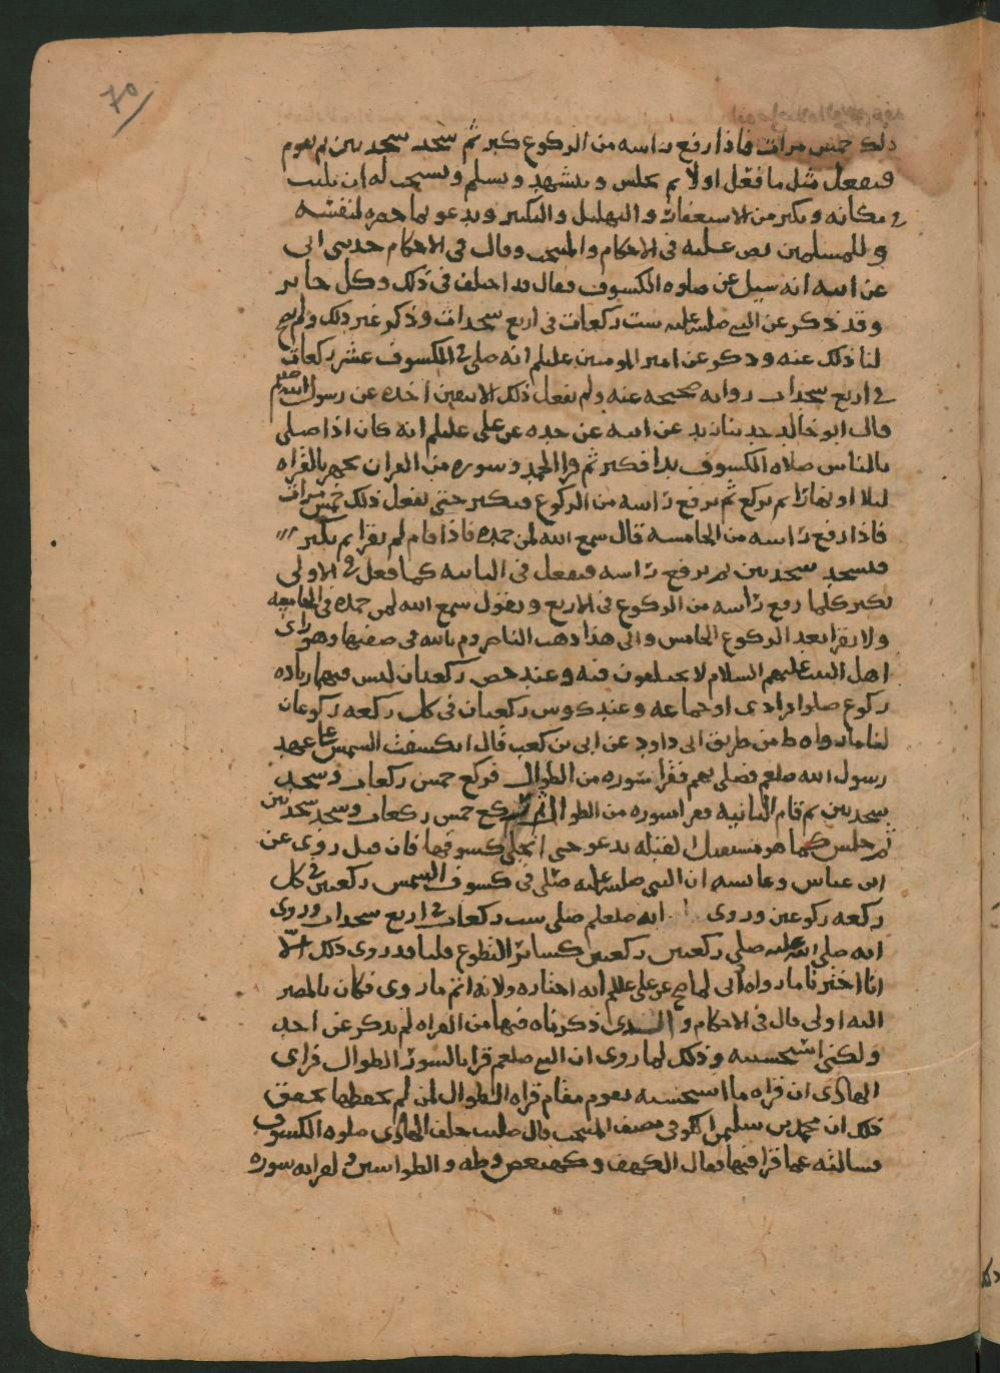 ٧٥
ذلك خمس مرات فاذا رفع راسه من الركوع كبر ثم سجد سجدتين ثم يقوم
فيفعل مثل ما فعل اولا ثم يجلس ويتشهد ويسلم ويستحب له ان يثبت
في مكانه ويكثر من الاستغفار والتهليل والتكبير ويدعو بما حضره لنفسه
وللمسلمين نص عليه في الاحكام والمنتخب وقال في الاحكام حدثني ابي
عن ابيه انه سيل عن صلوه الكسوف فقال قد اختلف في ذلك وكل جايز
وقد ذكر عن النبي صلى الله عليه ست ركعات في اربع سجدات وذكر غير ذلك ولم يصح
لنا ذلك عنه وذكر عن امير المومنين عليلم انه صلى في الكسوف عشر ركعات
في اربع سجدات روايه صحيحه عنه ولم يفعل ذلك الا بيقين اخذه عن رسول الله صلعم
قال ابو خالد حدثنا زيد عن ابيه عن جده عن علي عليلم انه كان اذا صلى
بالناس صلاه الكسوف بدا فكبر ثم قرا الحمد وسوره من القران يجهر بالقراه
ليلا او نهارا ثم يركع ثم يرفع راسه من الركوع فيكبر حتى يفعل ذلك خمس مرات
فاذا رفع راسه من الخامسه قال سمع الله لمن حمده فاذا قام لم يقرا ثم يكبر
فيسجد سجدتين ثم يرفع راسه فيفعل في الثانيه كما فعل في الاولى
يكبر كلما رفع راسه من الركوع في الاربع ويقول سمع الله لمن حمده في الخامسه
ولا يقرا بعد الركوع الخامس والى هذا ذهب الناصر وم بالله في صفتها وهو راي
اهل البيت عليهم السلام لا يختلفون فيه وعند حص ركعتان ليس فيهما زياده
ركوع صلوا فرادى او جماعه وعند ك وش ركعتان في كل ركعه ركوعان
لنا ما رواه ط من طريق ابي داود عن ابي بن كعب قال انكسفت الشمس على عهد
رسول الله صلعم فصلى بهم فقرا سوره من الطوال فركع خمس ركعات وسجد
سجدتين ثم قام الثانيه فقرا سوره من الطوال ثم ركع خمس ركعات وسجد سجدتين
ثم جلس كما هو مستقبل القبله يدعو حتى انجلى كسوفها فان قيل روي عن
ابن عباس وعايشه ان النبي صلى الله عليه صلى في كسوف الشمس ركعتين في كل
ركعه ركوعين وروي انه صلعلم صلى ست ركعات في اربع سجدات وروي
انه صلى الله عليه صلى ركعتين ركعتين كسائر التطوع قلنا قد روي ذلك الا
انا اخترنا ما رواه ابي لما صح عن علي عللم انه اختاره ولانه اتم ما روي فكان المصير
اليه اولى قال في الاحكام والـذي ذكرناه فيها من القراه لم يذكر عن احد
ولكني استحسنته وذلك لما روي ان النبي صلعم قرا بالسور الطوال فراى
الهادي ان قراه ما استحسنه يقوم مقام قراه الطوال لمن لم يحفظها يحقق
ذلك ان محمد بن سليمن الكوفي مصنف المنتخب قال صليت خلف الهادي صلوه الكسوف
فسالته عما قرا فيها فقال الكهف وكهيعص وطه والطواسين ولقرابه سوره